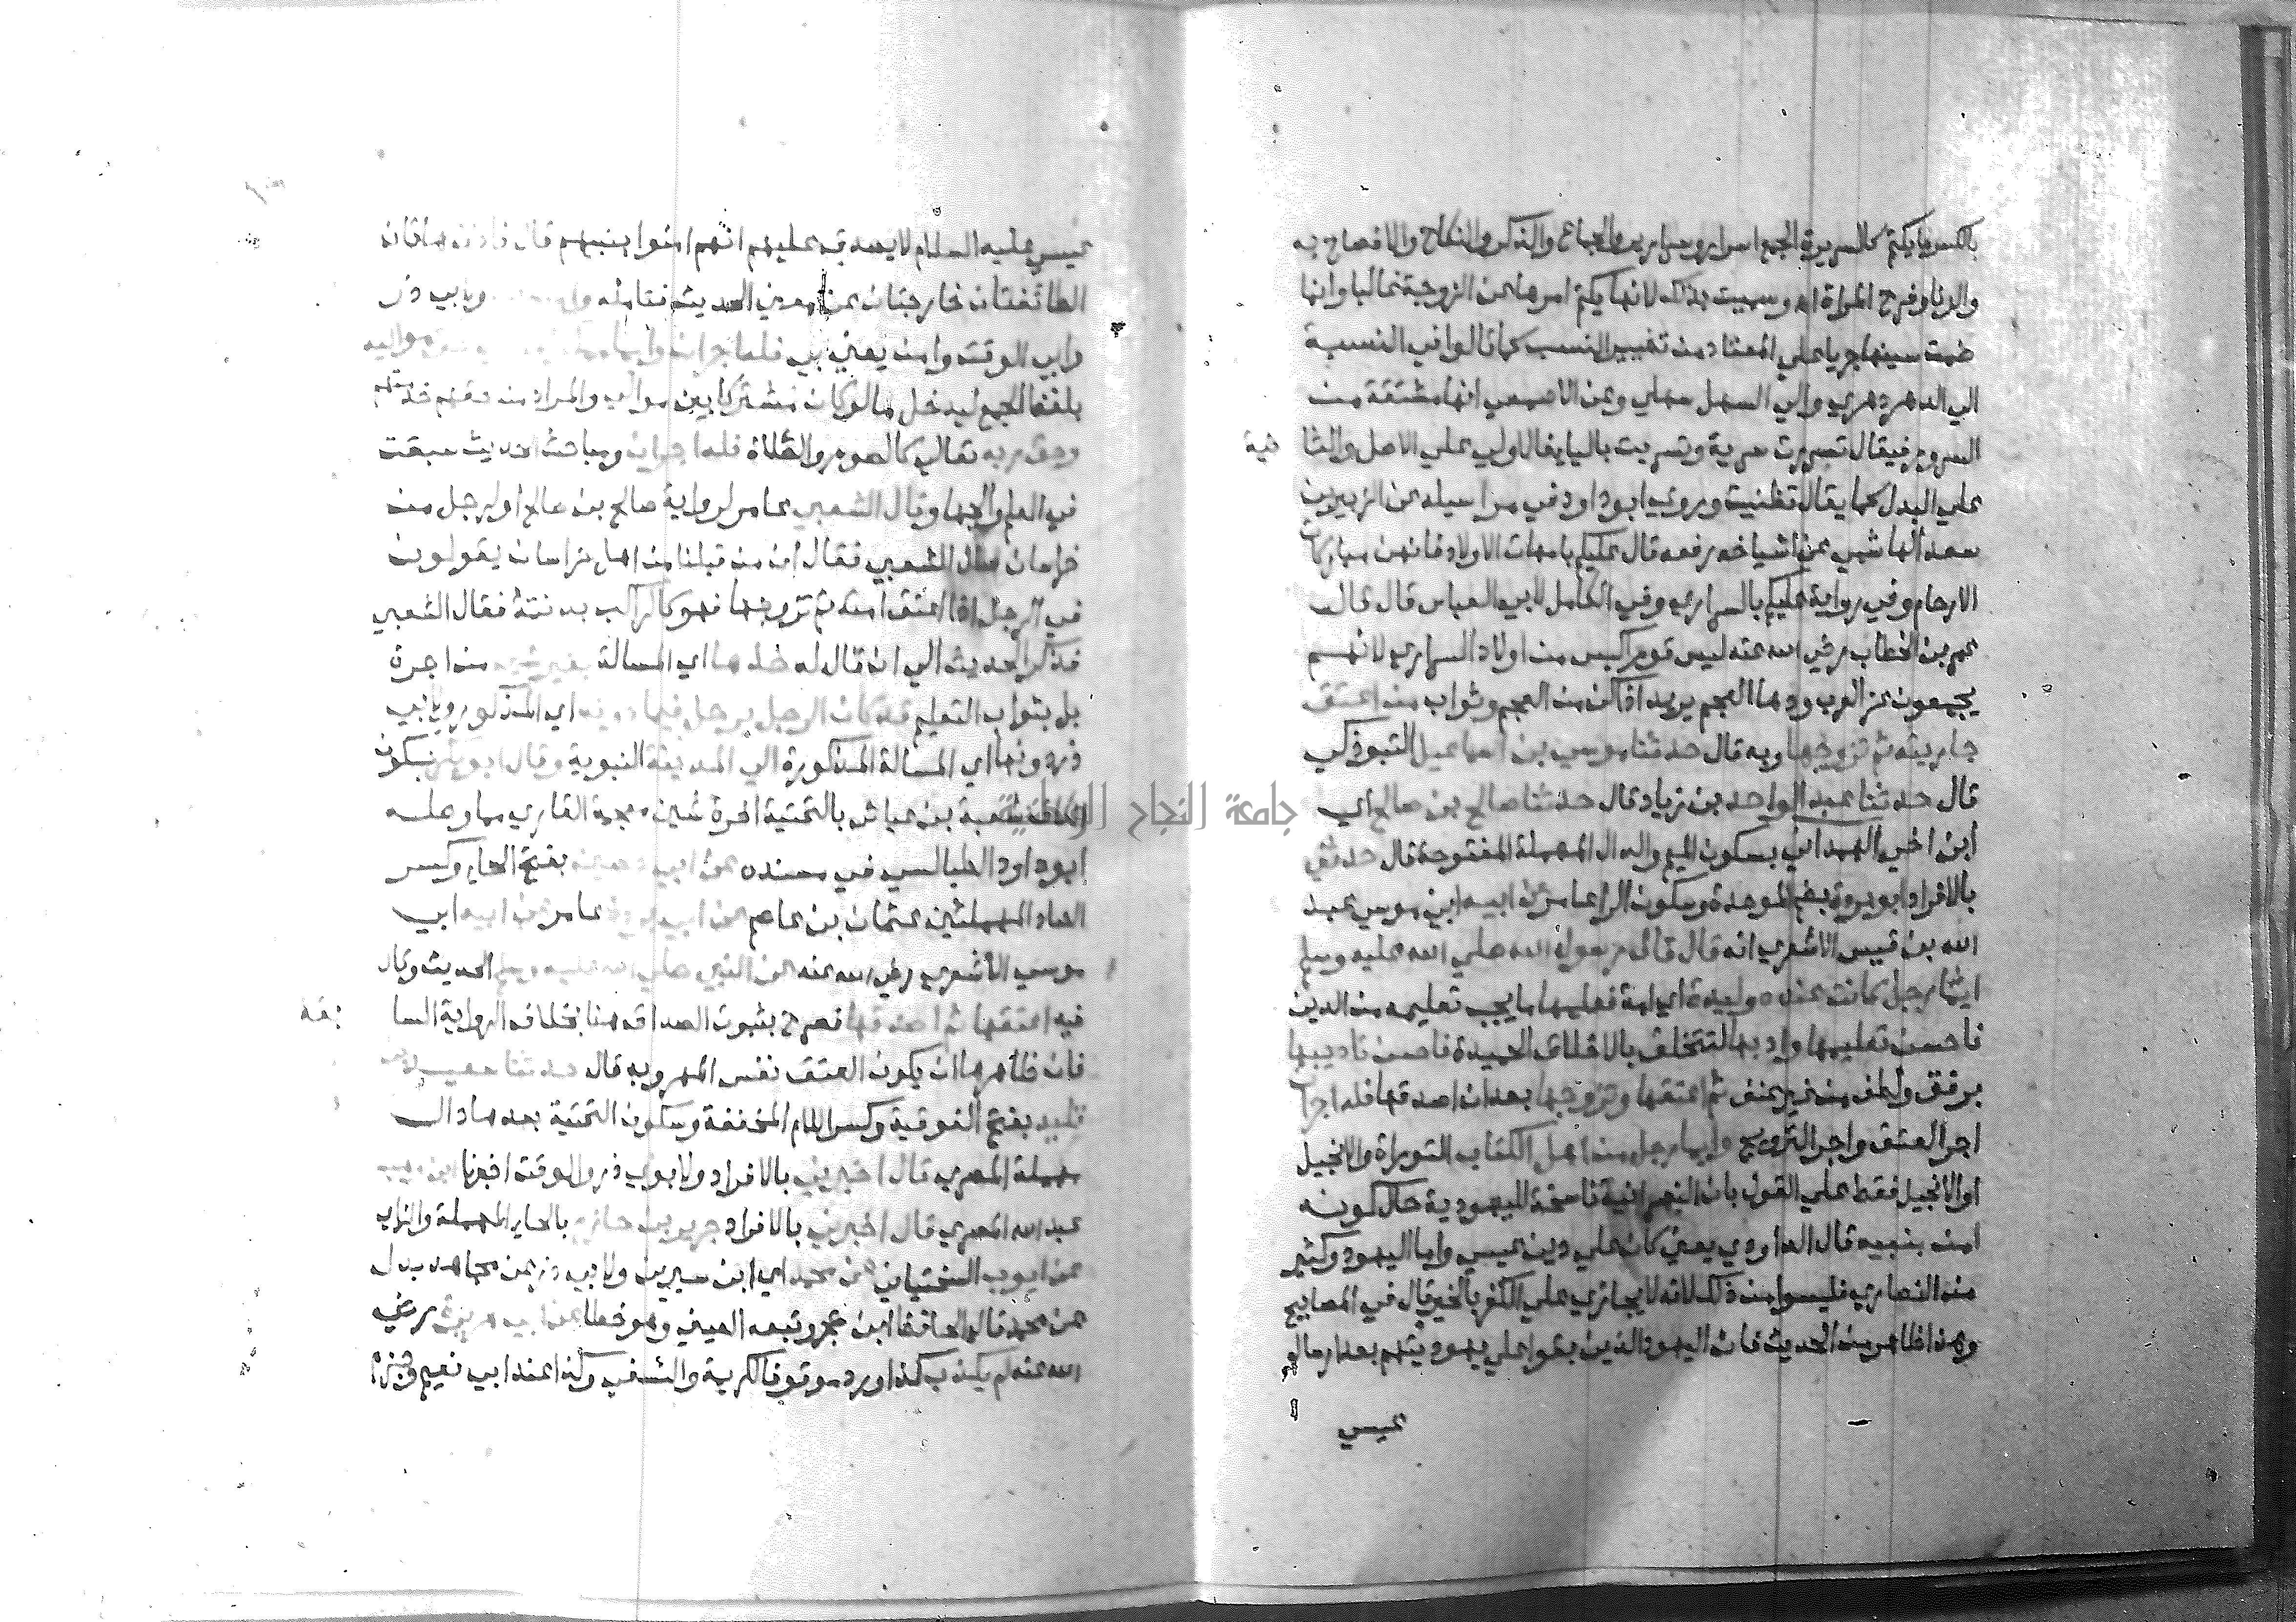 بالكسر ما يكتم كالسريرة الجمع اسرار وسراير والجماع والذكر والنكاح والافصاح به
والزنا وفرج المراة اه وسميت بذلك لانها يكتم امرها عن الزوجة غالبا وانها
ضمت سينها جريا علي المعتاد من تغيير النسب كما قالوا في النسبة
الي الدهر دهري والي السهل سهلي وعن الاصمعي انها مشتقة من
السرور فيقال تسررت سرية وتسريت باليا فالاولي علي الاصل والثا نية
علي البدل كما يقال تظنيت وروي ابو داود في مراسيله عن الزبير بن
سعد الهاشمي عن اشياخه رفعه قال عليكم بامهات الاولاد فانهن مباركات
الارحام وفي رواية عليكم بالسراري وفي الكامل لابي العباس قال قال
عمر بن الخطاب رضي الله عنه ليس قوم اكيس من اولاد السراري لانهم
يجمعون عز العرب ودها العجم يريد اذا كن من العجم وثواب من اعتق
جاريته ثم تزوجها وبه قال حدثنا موسي بن اسماعيل التبوذكي
قال حدثنا عبد الواحد بن زياد قال حدثنا صالح بن صالح اي
ابن اخي الهمداني بسكون الميم والدال المهملة المفتوحة قال حدثني
بالافراد ابو بردة بضم الموحدة وسكون الرا عامر عن ابيه ابي موسي عبد
الله بن قيس الاشعري انه قال قال رسول الله صلي الله عليه وسلم
ايما رجل كانت عنده وليدة اي امة فعلمها ما يجب تعليمه من الدين
فاحسن تعليمها وادبها لتتخلق بالاخلاق الحميدة فاحسن تاديبها
برفق ولطف من غير عنف ثم اعتقها وتزوجها بعد ان اصدقها فله اجران
اجر العتق واجر التزويج وايما رجل من اهل الكتاب التوراة والانجيل
او الانجيل فقط علي القول بان النصرانية ناسخة لليهودية حال كونه
امن بنبيه قال الداودي يعني كان علي دين عيسي واما اليهود وكثير
من النصاري فليسوا من ذلك لانه لا يجازي علي الكفر بالخير قال في المصابيح
وهذا ظاهر من الحديث فان اليهود الذين بقوا علي يهوديتهم بعد ارسال
عيسي
عيسي عليه السلام لا يصدق عليهم انهم امنوا بنبيهم قال
الطائفتان خارجتان عن معني الحديث فتامله ولابي ذر
وابي الوقت وامن يعني بي فله اجران وايما مواليه
بلفظ الجمع ليدخل ما لو كان مشتركا بين موالي والمراد من حقهم خدمتهم
وحق ربه تعالي كالصوم والصلاة فله اجران ومباحث الحديث سبقت
في العلم والجهاد وقال الشعبي عامر لرواية صالح بن صالح او لرجل من
خراسان سال الشعبي فقال ان من قبلنا من اهل خراسان يقولون
في الرجل اذا اعتق امته ثم تزوجها فهو كالراكب بدنته فقال الشعبي
فذكر الحديث الي ان قال له خذها اي المسالة بغير شيء من اجرة
بل بثواب التعليم قد كان الرجل يرحل فيما دونه اي المذكور ولابي
ذر دونها اي المسالة المذكورة الي المدينة النبوية وقال ابو بكر بسكون
الكاف شعبة بن عياش بالتحتية اخره شين معجمة القاري مما وصله
ابو داود الطيالسي في مسنده عن ابي حصين بفتح الحا وكسر
الصاد المهملتين عثمان بن عاصم عن ابي بردة عامر عن ابيه ابي
موسي الاشعري رضي الله عنه عن النبي صلي الله عليه وسلم الحديث وقال
فيه اعتقها ثم اصدقها فصرح بثبوت الصداق هنا بخلاف الرواية السا بقة
فان ظاهرها ان يكون العتق نفس المهر وبه قال حدثنا سعيد بن
تليد بفتح الفوقية وكسر اللام المخففة وسكون التحتية بعدها دال
مهملة المصري قال اخبرني بالافراد ولابوي ذر والوقت اخبرنا ابن وهب
عبد الله المصري قال اخبرني بالافراد جرير بن حازم بالحا المهملة والزاي
عن ايوب السختياني عن محمد اي ابن سيرين ولابي ذر عن مجاهد بدل
عن محمد قال الحافظ ابن حجر وتبعه العيني وهو خطا عن ابي هريرة رضي
الله عنه لم يكذب كذا ورد موقوفا لكريمة والنسفي وكذا عند ابي نعيم وجزم
جامعة النجاح